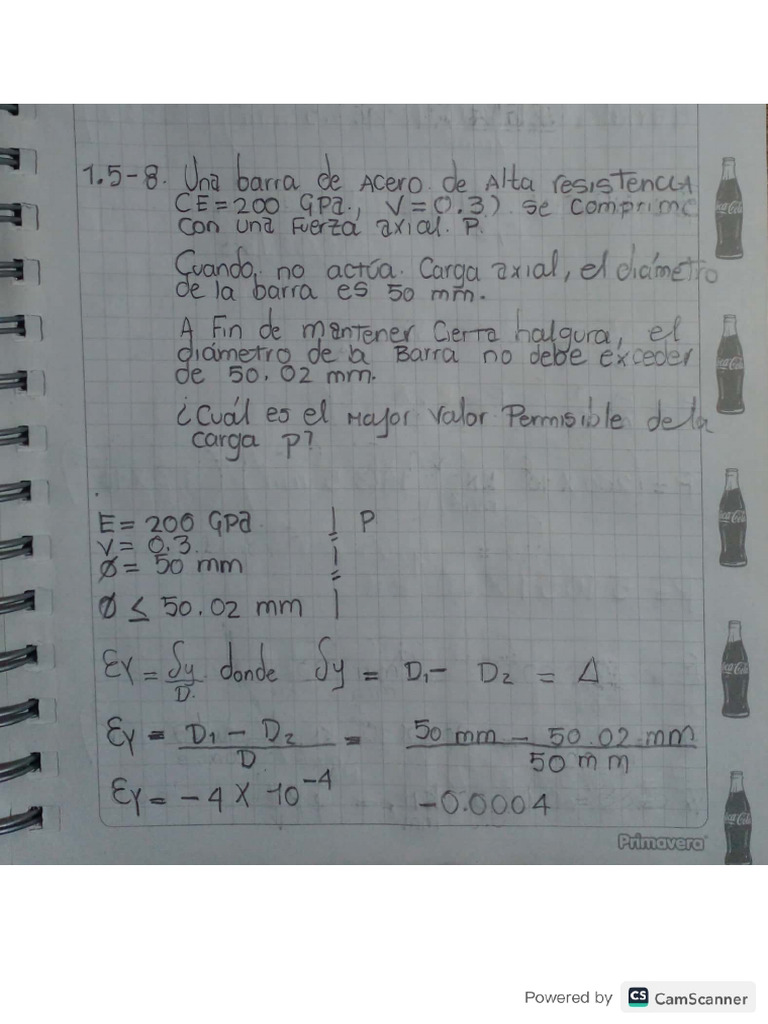 1.5-8. Una barra de Acero de Alta resistencia
(E=200 GPa., V=0.3) se comprime
con una Fuerza axial. P.
Cuando, no actúa. Carga axial, el diámetro
de la barra es 50 mm.
A Fin de mantener Cierta halgura, el
diámetro de la Barra no debe exceder
de 50.02 mm.
¿Cuál es el Mayor Valor Permisible de la
carga P?
E = 200 GPa | P
V = 0.3
Ø = 50 mm
Ø ≤ 50.02 mm
EY = δy/D. donde δy = D1 - D2 = Δ
EY = D1 - D2 / D = 50 mm - 50.02 mm / 50 mm
EY = -4 X 10^-4 -0.0004
Primavera
Coca-Cola
Coca-Cola
Coca-Cola
Coca-Cola
Coca-Cola
Powered by CS CamScanner